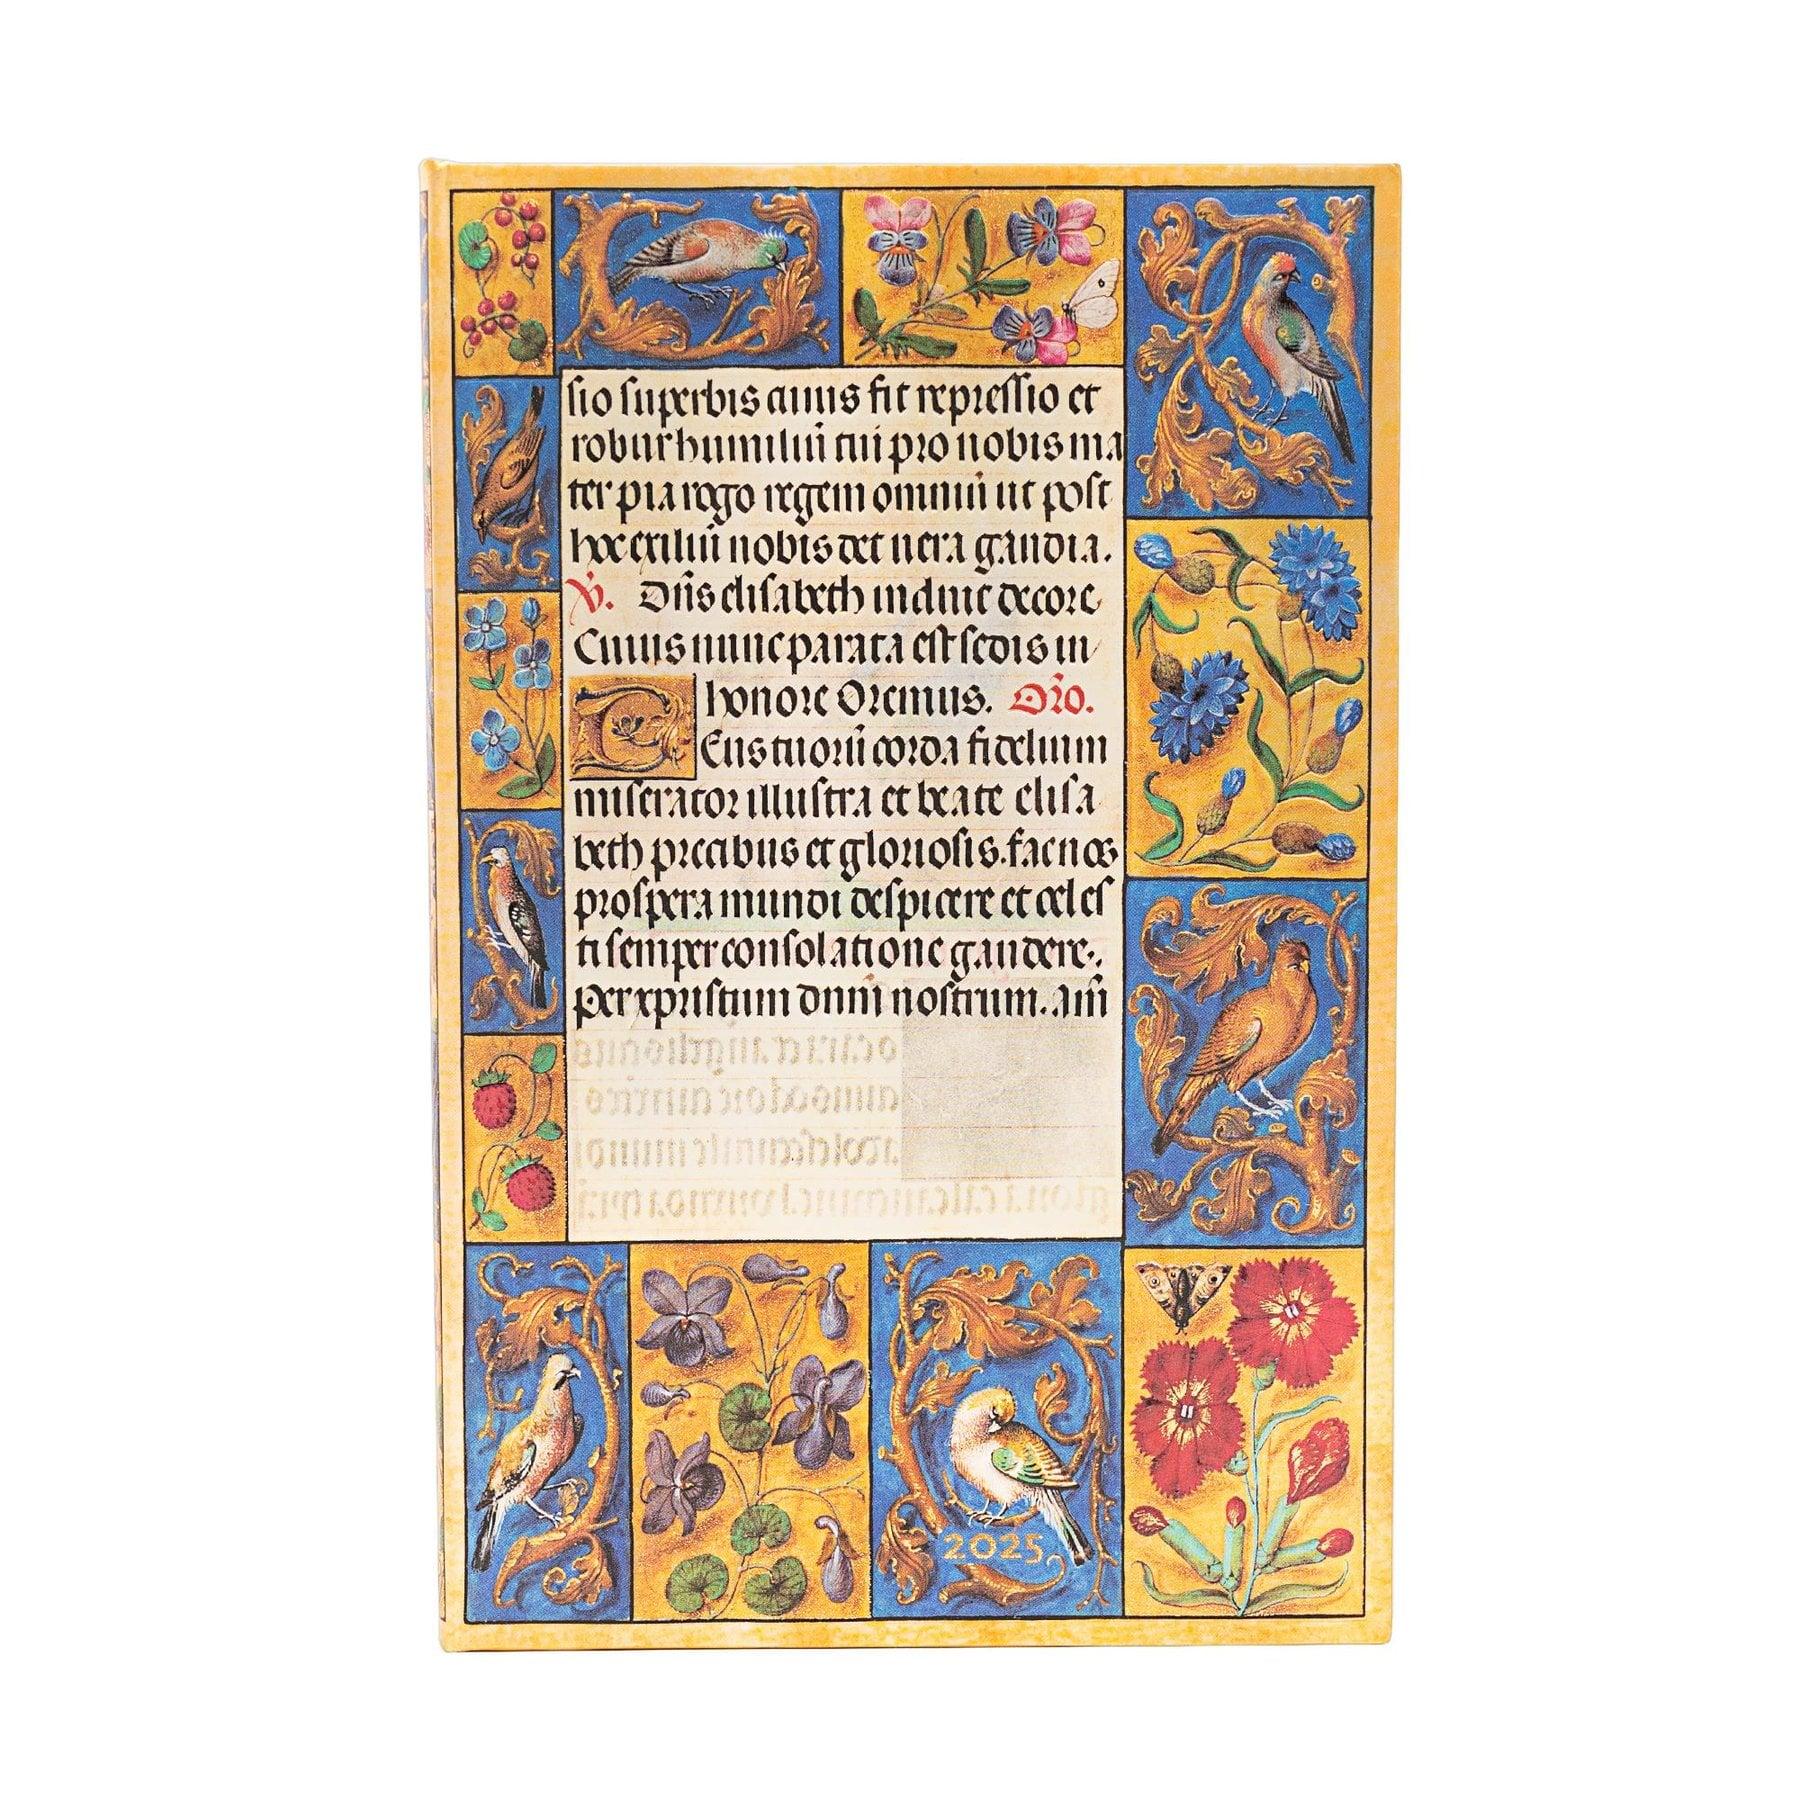 sio superbis cuius fit repressio et
robur humiliū tui pro nobis ma
ter pia rogo regem omniū ut post
hoc exiliū nobis det vera gaudia.
V̷. Dn̄s elisabeth induit decore
Cuius nunc parata est sedis in
honore Oremus. Or̄o.
Eus tuorū corda fidelium
miserator illustra et beate elisa
beth precibus et gloriosis. fac nos
prospera mundi despicere et celes
ti semper consolatione gaudere.
Per xpristum dnm̄ nostrum. Am̄
2025